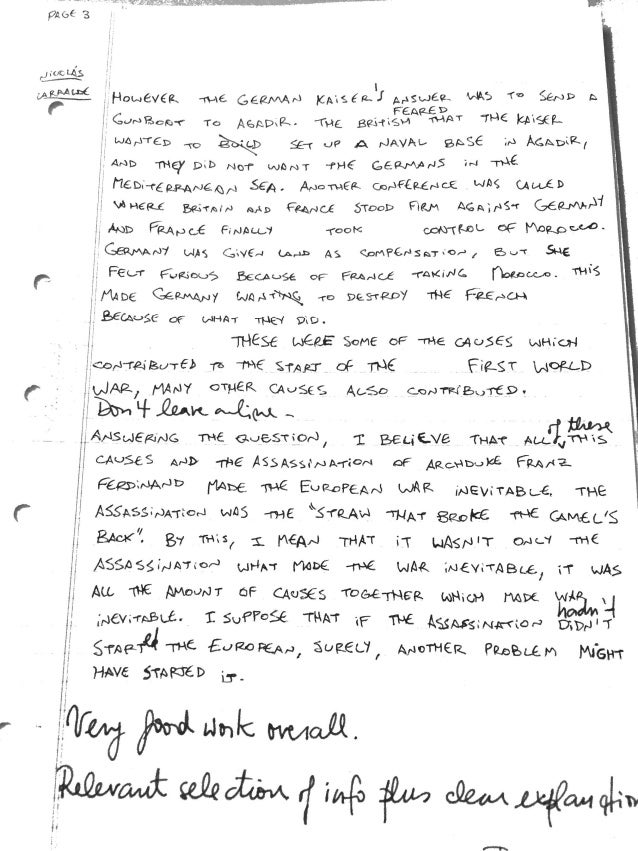 PAGE 3
NICOLÁS
LARRALDE
HOWEVER THE GERMAN KAISER'S ANSWER WAS TO SEND A
GUNBOAT TO AGADIR. THE BRITISH FEARED THAT THE KAISER
WANTED TO BUILD SET UP A NAVAL BASE IN AGADIR,
AND THEY DID NOT WANT THE GERMANS IN THE
MEDITERRANEAN SEA. ANOTHER CONFERENCE WAS CALLED
WHERE BRITAIN AND FRANCE STOOD FIRM AGAINST GERMANY
AND FRANCE FINALLY TOOK CONTROL OF MOROCCO.
GERMANY WAS GIVEN LAND AS COMPENSATION, BUT SHE
FELT FURIOUS BECAUSE OF FRANCE TAKING MOROCCO. THIS
MADE GERMANY WANTING TO DESTROY THE FRENCH
BECAUSE OF WHAT THEY DID.
THESE WERE SOME OF THE CAUSES WHICH
CONTRIBUTED TO THE START OF THE FIRST WORLD
WAR, MANY OTHER CAUSES ALSO CONTRIBUTED.
Don't leave a line -
ANSWERING THE QUESTION, I BELIEVE THAT ALL of these THIS
CAUSES AND THE ASSASSINATION OF ARCHDUKE FRANZ
FERDINAND MADE THE EUROPEAN WAR INEVITABLE. THE
ASSASSINATION WAS THE "STRAW THAT BROKE THE CAMEL'S
BACK". BY THIS, I MEAN THAT IT WASN'T ONLY THE
ASSASSINATION WHAT MADE THE WAR INEVITABLE, IT WAS
ALL THE AMOUNT OF CAUSES TOGETHER WHICH MADE WAR
INEVITABLE. I SUPPOSE THAT IF THE ASSASSINATION hadn't DIDN'T
STARTed THE EUROPEAN, SURELY, ANOTHER PROBLEM MIGHT
HAVE STARTED IT.
Very good work overall.
Relevant selection of info plus clear explanation